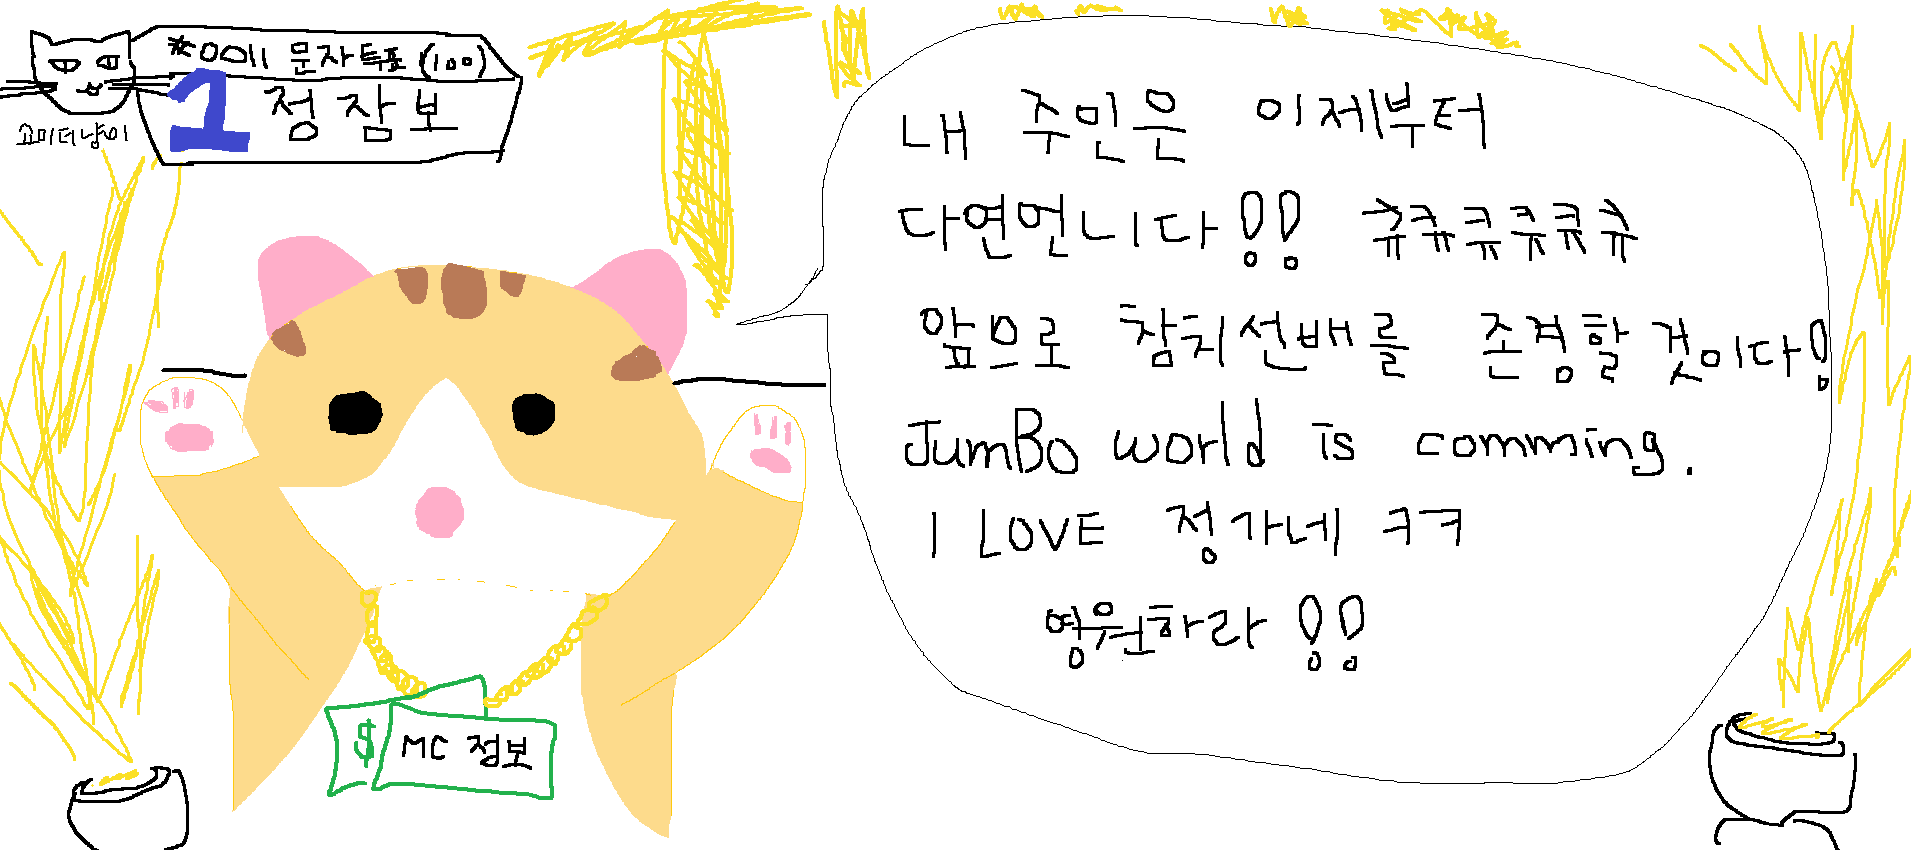 *0011 문자투표 (100)
1 정잠보
쇼미더냥이
내 주인은 이제부터
다연언니다!! 큐큐큐큐큐큐
앞으로 참치선배를 존경할것이다!
JumBo world is comming.
I LOVE 정가네 ㅋㅋ
영원하라!!
$ MC 점보